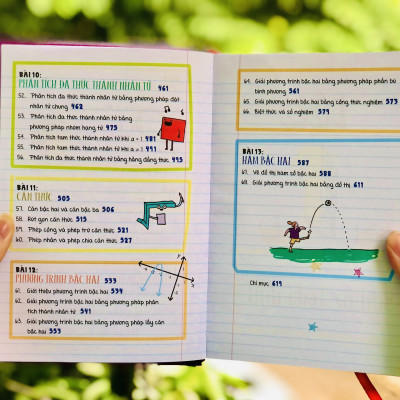 BÀI 10:
PHÂN TÍCH ĐA THỨC THÀNH NHÂN TỬ 461
52. Phân tích đa thức thành nhân tử bằng phương pháp đặt
nhân tử chung 462
53. Phân tích đa thức thành nhân tử bằng
phương pháp nhóm hạng tử 475
54. Phân tích tam thức thành nhân tử khi a = 1 481
55. Phân tích tam thức thành nhân tử khi a ≠ 1 491
56. Phân tích đa thức thành nhân tử bằng hằng đẳng thức 495
BÀI 11:
CĂN THỨC 505
57. Căn bậc hai và căn bậc ba 506
58. Rút gọn căn thức 513
59. Phép cộng và phép trừ căn thức 521
60. Phép nhân và phép chia căn thức 527
BÀI 12:
PHƯƠNG TRÌNH BẬC HAI 533
61. Giới thiệu phương trình bậc hai 534
62. Giải phương trình bậc hai bằng phương pháp phân
tích thành nhân tử 541
63. Giải phương trình bậc hai bằng phương pháp lấy căn
bậc hai 553
64. Giải phương trình bậc hai bằng phương pháp phần bù
bình phương 561
65. Giải phương trình bậc hai bằng công thức nghiệm 573
66. Biệt thức và số nghiệm 579
BÀI 13:
HÀM BẬC HAI 587
67. Vẽ đồ thị hàm số bậc hai 588
68. Giải phương trình bậc hai bằng đồ thị 611
Chỉ mục 619